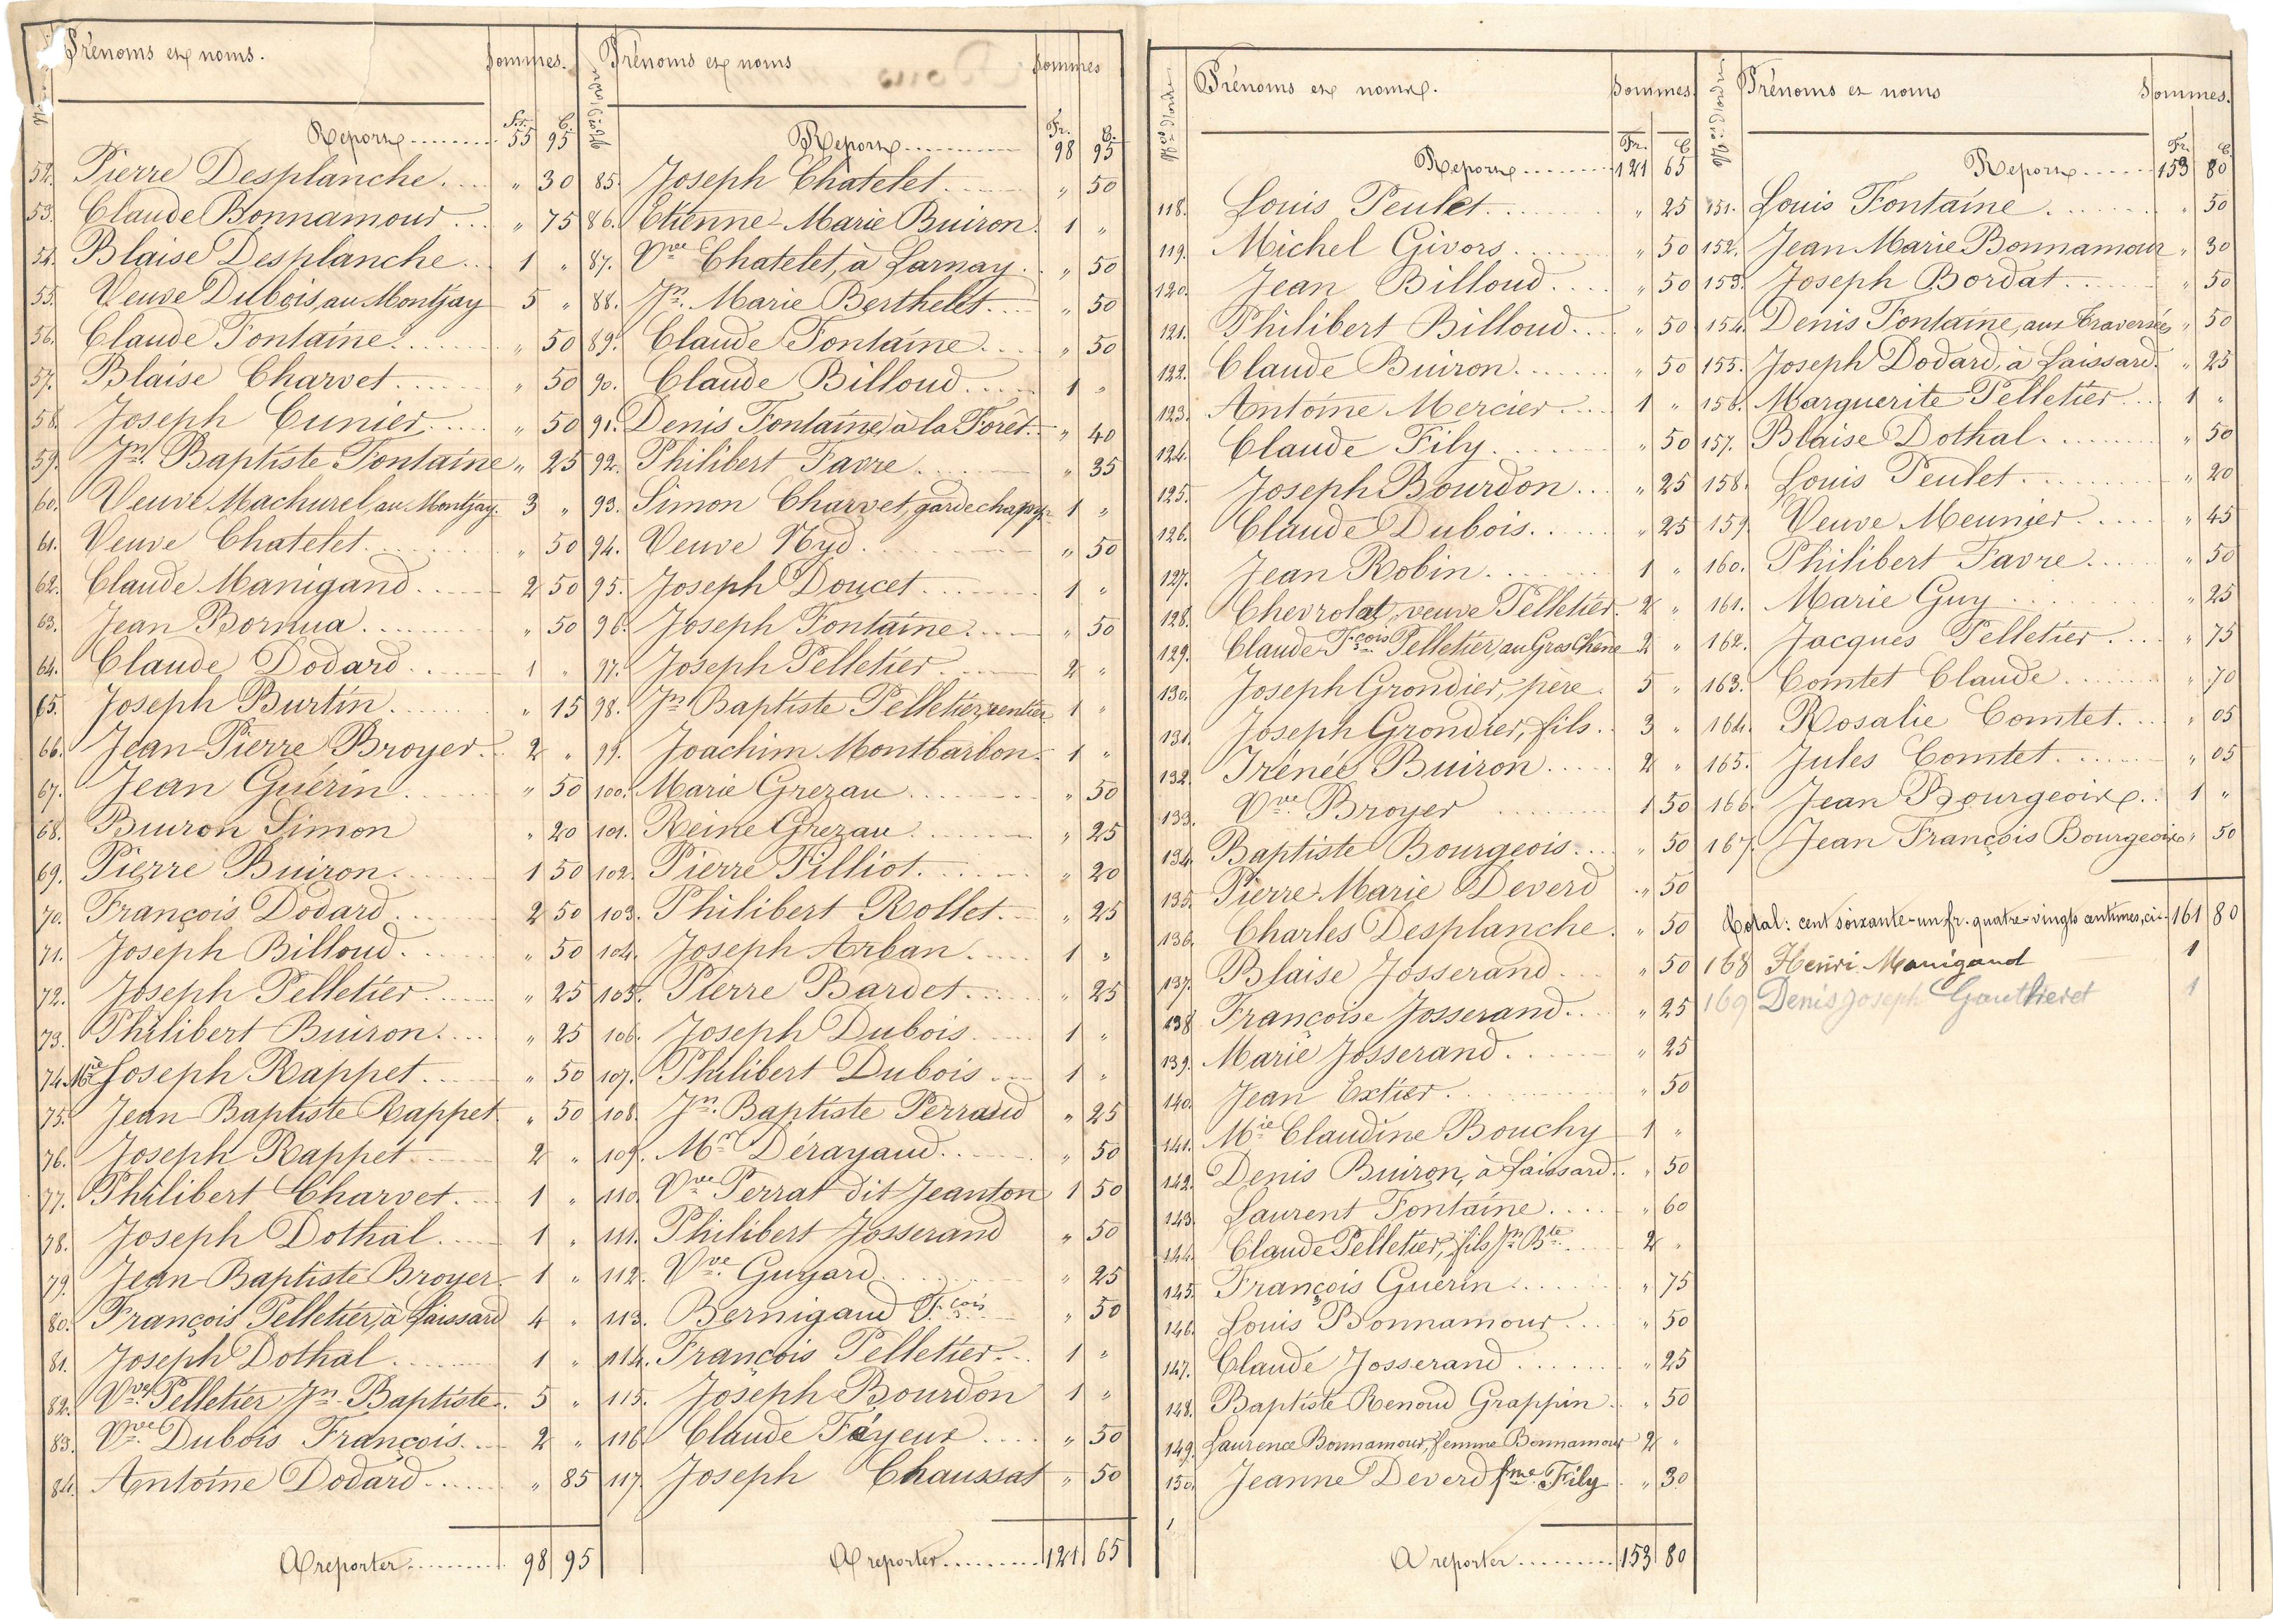 Prénoms et noms. Sommes.
Fr. C.
Report 55 95
52. Pierre Desplanche " 30
53. Claude Bonnamour " 75
54. Blaise Desplanche 1 "
55. Veuve Dubois, au Montjay 5 "
56. Claude Fontaine " 50
57. Blaise Charvet " 50
58. Joseph Cunier " 50
59. Jn. Baptiste Fontaine " 25
60. Veuve Machurel, au Montjay 3 "
61. Veuve Chatelet " 50
62. Claude Manigand 2 50
63. Jean Bornua " 50
64. Claude Dodard 1 "
65. Joseph Burtin " 15
66. Jean-Pierre Broyer 2 "
67. Jean Guérin " 50
68. Buiron Simon " 20
69. Pierre Buiron 1 50
70. François Dodard 2 50
71. Joseph Billoud " 50
72. Joseph Pelletier " 25
73. Philibert Buiron " 25
74. Mie Joseph Rappet " 50
75. Jean-Baptiste Rappet " 50
76. Joseph Rappet 2 "
77. Philibert Charvet 1 "
78. Joseph Dothal 1 "
79. Jean-Baptiste Broyer 1 "
80. François Pelletier, à Laissard 4 "
81. Joseph Dothal 1 "
82. Vve Pelletier Jn-Baptiste 5 "
83. Vve Dubois François 2 "
84. Antoine Dodard " 85
A reporter 98 95
Nos d'ordre Prénoms et noms Sommes
Fr. C.
Report 98 95
85. Joseph Chatelet " 50
86. Etienne-Marie Buiron 1 "
87. Vve Chatelet, à Larnay " 50
88. Jn. Marie Berthelet " 50
89. Claude Fontaine " 50
90. Claude Billoud 1 "
91. Denis Fontaine, à la Forêt " 40
92. Philibert Favre " 35
93. Simon Charvet, garde champ. 1 "
94. Veuve Nyd " 50
95. Joseph Doucet 1 "
96. Joseph Fontaine " 50
97. Joseph Pelletier 2 "
98. Jn Baptiste Pelletier, rentier 1 "
99. Joachim Montbarbon 1 "
100. Marie Grezau " 50
101. Reine Grezau " 25
102. Pierre Filliot " 20
103. Philibert Rollet " 25
104. Joseph Arban 1 "
105. Pierre Bardet " 25
106. Joseph Dubois 1 "
107. Philibert Dubois 1 "
108. Jn. Baptiste Perraud " 25
109. Mr Dérayaud " 50
110. Vve Perrat dit Jeanton 1 50
111. Philibert Josserand " 50
112. Vve Guyard " 25
113. Bernigaud Fçois " 50
114. François Pelletier 1 "
115. Joseph Bourdon 1 "
116. Claude Fayeux " 50
117. Joseph Chaussat " 50
A reporter 121 65
Nos d'ordre Prénoms et noms. Sommes.
Fr. C
Report 121 65
118. Louis Peulet " 25
119. Michel Givors " 50
120. Jean Billoud " 50
121. Philibert Billoud " 50
122. Claude Buiron " 50
123. Antoine Mercier 1 "
124. Claude Fily " 50
125. Joseph Bourdon " 25
126. Claude Dubois " 25
127. Jean Robin 1 "
128. Chevrolat, veuve Pelletier 2 "
129. Claude Fçois Pelletier, au Gros Chêne 2 "
130. Joseph Grondier, père 5 "
131. Joseph Grondier, fils 3 "
132. Irénée Buiron 2 "
133. Vve Broyer 1 50
134. Baptiste Bourgeois " 50
135. Pierre Marie Deverd " 50
136. Charles Desplanche " 50
137. Blaise Josserand " 50
138 Françoise Josserand " 25
139. Marie Josserand " 25
140. Jean Extier " 50
141. Mie Claudine Bouchy 1 "
142. Denis Buiron, à Laissard " 50
143. Laurent Fontaine " 60
144. Claude Pelletier, fils Jn Bte 2 "
145. François Guérin " 75
146. Louis Bonnamour " 50
147. Claude Josserand " 25
148. Baptiste Renoud Grappin " 50
149. Laurence Bonnamour, femme Bonnamour 2 "
150. Jeanne Deverd fme Fily " 30
A reporter 153 80
Nos d'ordre Prénoms et noms Sommes.
Fr. C.
Report 153 80
151. Louis Fontaine " 50
152. Jean Marie Bonnamour " 30
153. Joseph Bordat " 50
154. Denis Fontaine, aux Traversées " 50
155. Joseph Dodard, à Laissard " 25
156. Marguerite Pelletier 1 "
157. Blaise Dothal " 50
158. Louis Peulet " 20
159. Veuve Meunier " 45
160. Philibert Favre " 50
161. Marie Guy " 25
162. Jacques Pelletier " 75
163. Comtet Claude " 70
164. Rosalie Comtet " 05
165. Jules Comtet " 05
166. Jean Bourgeois 1 "
167. Jean François Bourgeois " 50
Total: cent soixante-un fr. quatre-vingts centimes, ci 161 80
168 Henri Manigand 1
169 Denis Joseph Gauthieret 1